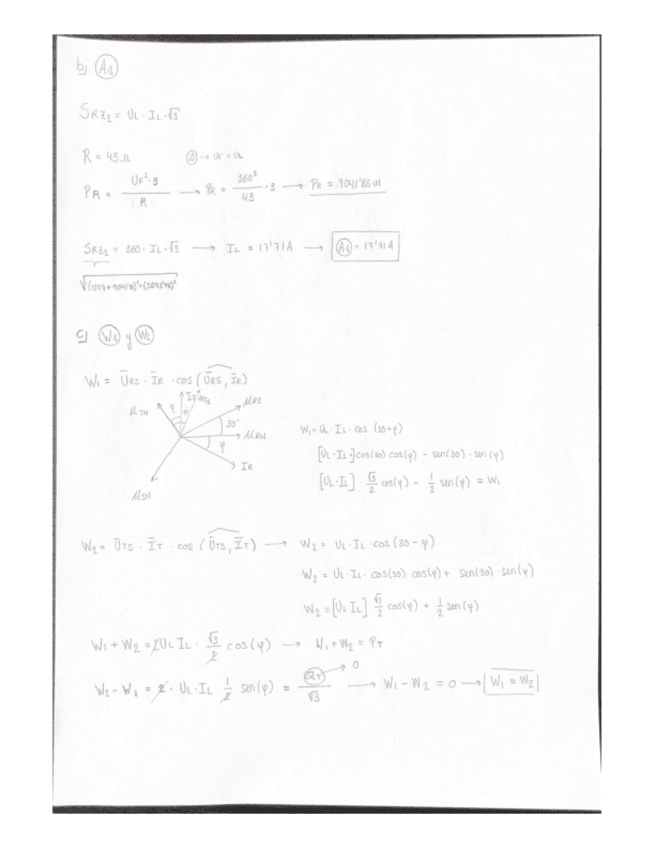 b) A1
S_RZ1 = UL · IL · √3
R = 43 Ω   Δ → UF = UL
PR = UF² · 3 / R → PR = 360² / 43 · 3 → PR = 9041'86 W
S_RZ1 = 360 · IL · √3 → IL = 17'71 A → A1 = 17'71 A
c) W1 y W2
W1 = ŪRS · ĪR · cos (ŪRS, ĪR)
UTN φ IT UTS URS
30° URN
φ IR
USN
W1 = UL · IL · cos (30+φ)
[UL · IL] cos(30) cos(φ) - sen(30) · sen(φ)
[UL · IL] √3/2 cos(φ) - 1/2 sen(φ) = W1
W2 = ŪTS · ĪT · cos (ŪTS, ĪT) → W2 = UL · IL · cos (30 - φ)
W2 = UL · IL · cos(30) · cos(φ) + sen(30) · sen(φ)
W2 = [UL IL] √3/2 cos(φ) + 1/2 sen(φ)
W1 + W2 = 2 UL IL · √3/2 cos(φ) → W1 + W2 = PT
W2 - W1 = 2 · UL · IL 1/2 sen(φ) = QT / √3 → 0 → W1 - W2 = 0 → W1 = W2